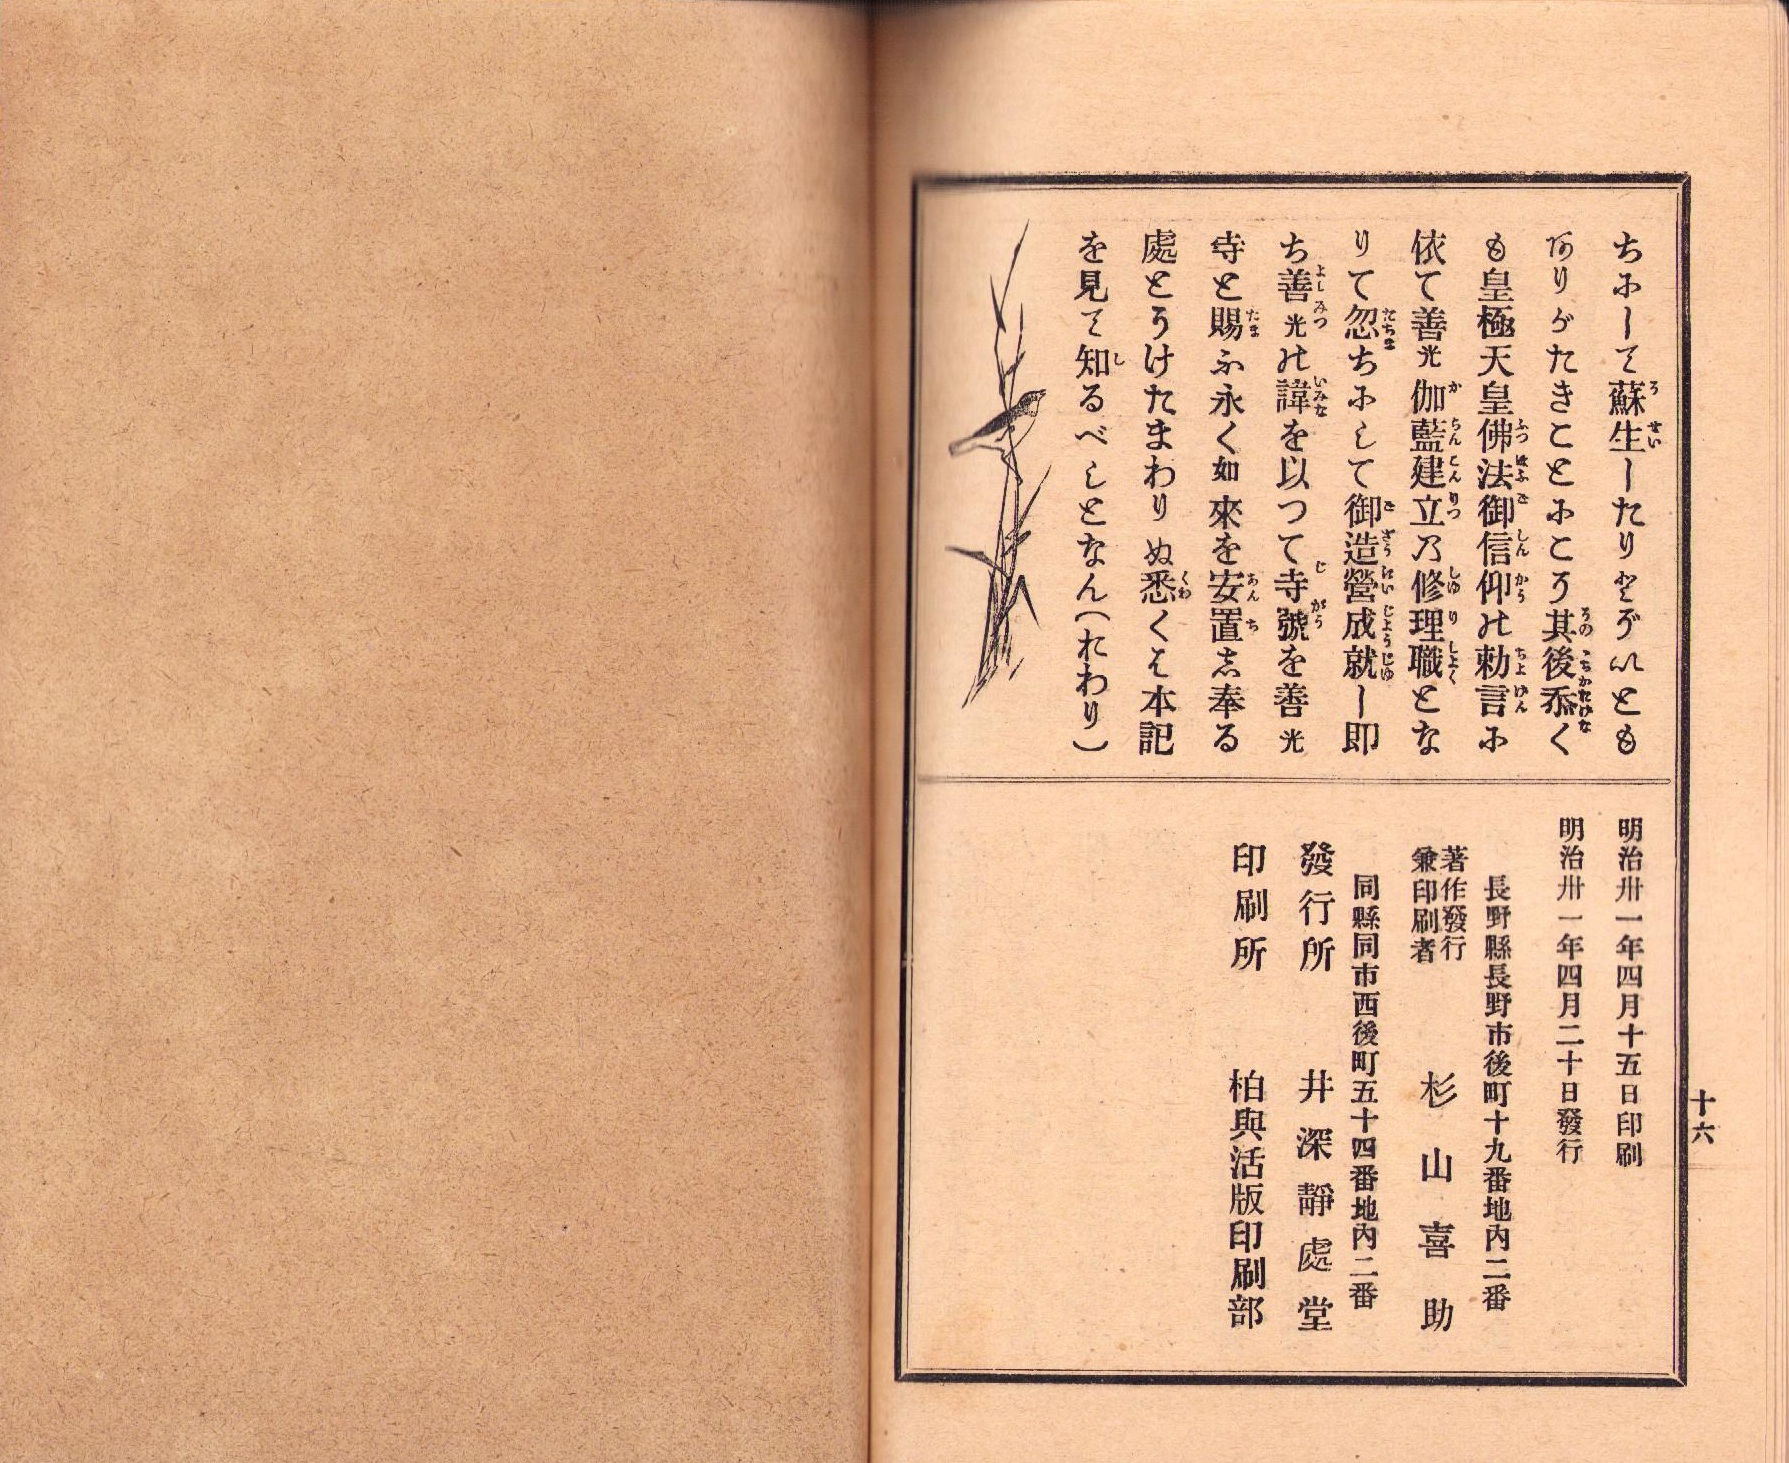 ちにして蘇生したりとぞいとも
ありがたきことにこそ其後忝く
も皇極天皇佛法御信仰の勅言に
依て善光伽藍建立乃修理職とな
りて忽ちにして御造營成就し即
ち善光の諱を以つて寺號を善光
寺と賜ふ永く如來を安置し奉る
處とうけたまわりぬ悉くは本記
を見て知るべしとなん(おわり)
明治卅一年四月十五日印刷
明治卅一年四月二十日發行
長野縣長野市後町十九番地内二番
著作發行兼印刷者 杉山喜助
同縣同市西後町五十四番地内二番
發行所 井深靜處堂
印刷所 柏與活版印刷部
十六